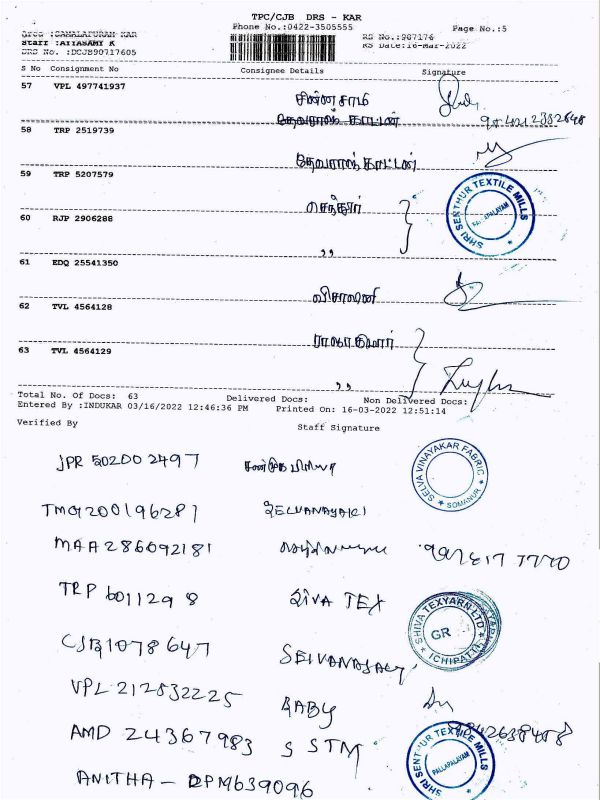 TPC/CJB DRS - KAR
Phone No.:0422-3505555
Page No.:5
Area :SAMALAPURAM KAR
RS No.:907176
Staff :AIYASAMY K
RS Date:16-Mar-2022
DRS No. :DCJB90717605
S No Consignment No Consignee Details Signature
57 VPL 497741937
சின்னசாமி
58 TRP 2519739
59 TRP 5207579
செந்தூர்
SHRI SENTHUR TEXTILE MILLS
PALLAPALAYAM
60 RJP 2906288
,,
61 EDQ 25541350
விசாலினி
62 TVL 4564128
ராஜாகுமார்
63 TVL 4564129
,,
Total No. Of Docs: 63 Delivered Docs: Non Delivered Docs:
Entered By :INDUKAR 03/16/2022 12:46:36 PM Printed On: 16-03-2022 12:51:14
Verified By Staff Signature
JPR 502002497
SELVA VINAYAKAR FABRIC
SOMANUR
TMG200196281 SELVANAYAKI
MAA286092181
TRP 6011298 SIVA TEX
SHIVA TEXYARN LTD
GR
ICHIPATTI
CJB1078647
VPL 212832225 BABY
AMD 24367983 S STM
9842638488
SHRI SENTHUR TEXTILE MILLS
PALLAPALAYAM
ANITHA - DPM639096